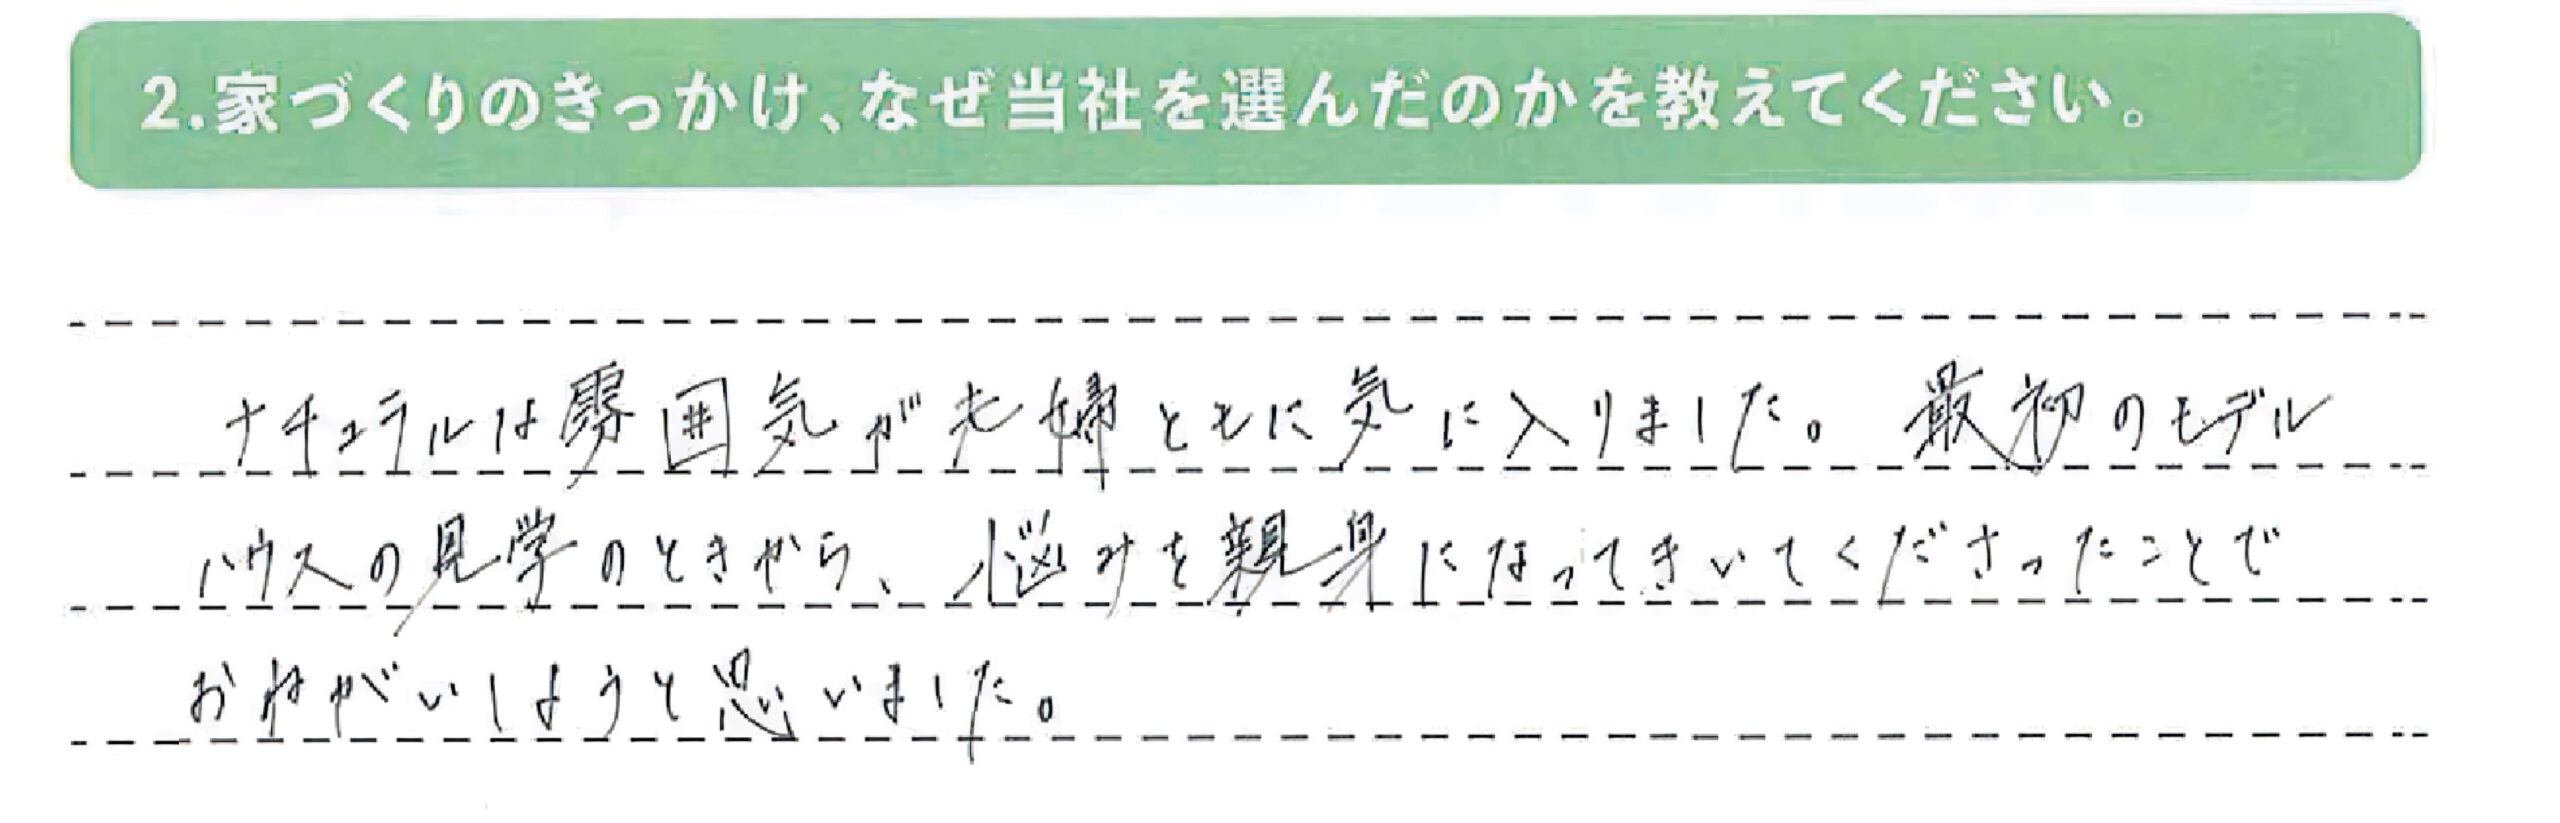 2.家づくりのきっかけ、なぜ当社を選んだのかを教えてください。
ナチュラルは雰囲気が夫婦ともに気に入りました。最初のモデル
ハウスの見学のときから、悩みを親身になってきいてくださったことで
おねがいしようと思いました。